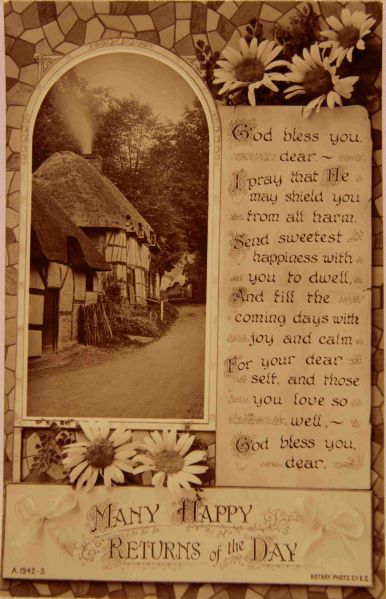 God bless you,
dear. ~
I pray that He
may shield you
from all harm,
Send sweetest
happiness with
you to dwell,
And fill the
coming days with
joy and calm
For your dear
self, and those
you love so
well, ~
God bless you,
dear.
MANY HAPPY
RETURNS of the DAY
A.1942-3.
ROTARY PHOTO, Co E.C.